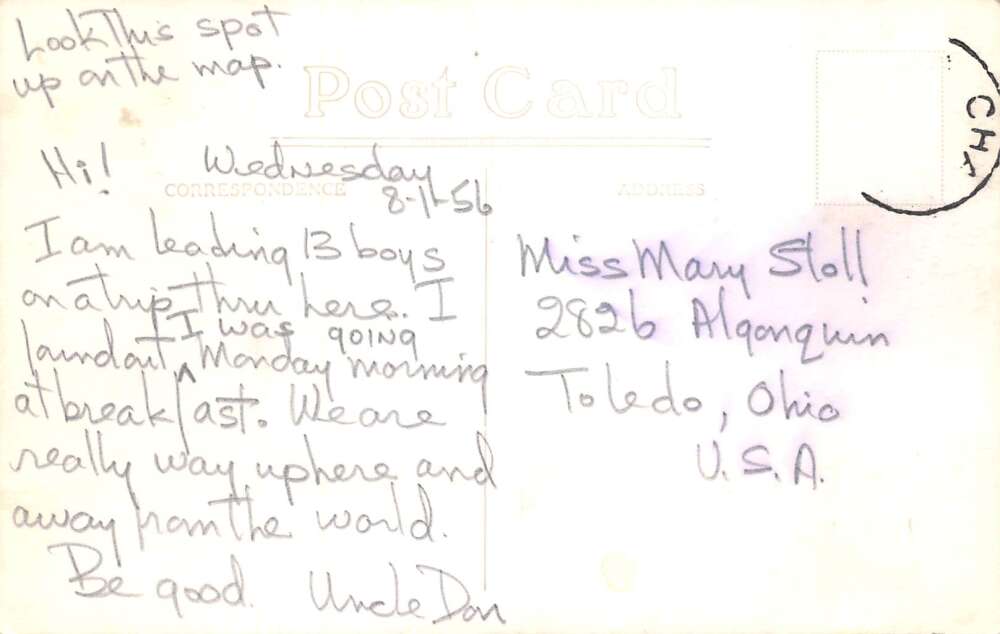 Look This spot
up on the map.
Post Card
Hi! Wednesday
CORRESPONDENCE
ADDRESS
8-11-56
I am leading 13 boys
on a trip thru here. I
I was going
found out ^ Monday morning
at breakfast. We are
really way up here and
away from the world.
Be good. Uncle Don
Miss Mary Stoll
2826 Algonquin
Toledo, Ohio
U.S.A.
CHA